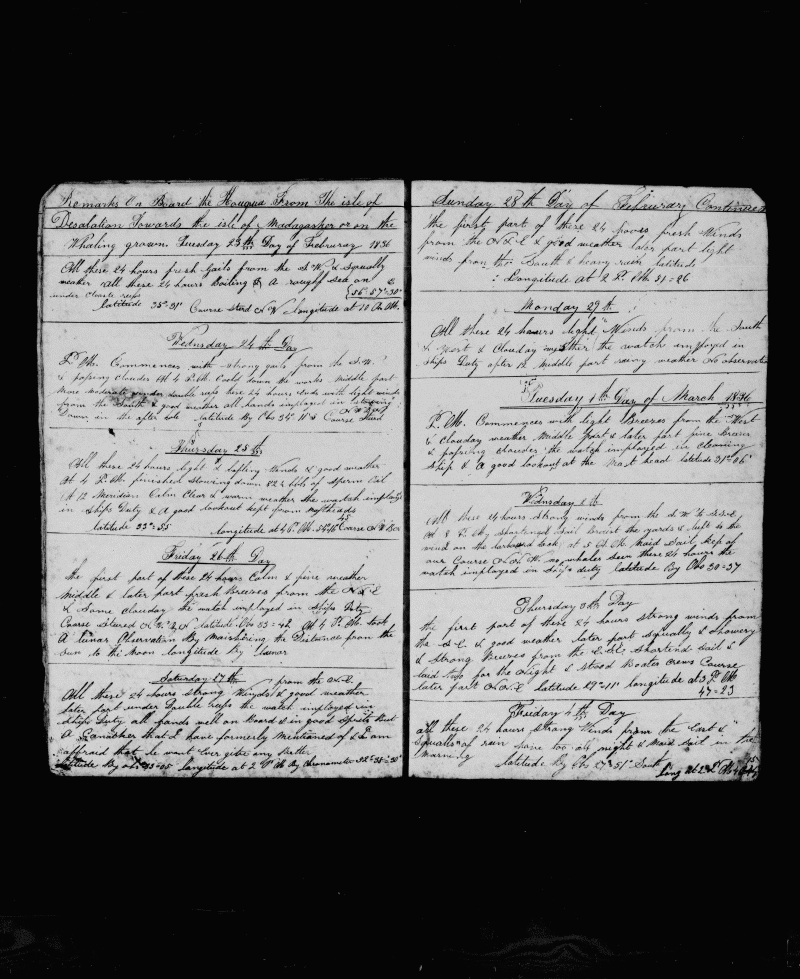 Remarks On Board the Houqua From The isle of
Desolation Towards the isle of Madagasker or on the
Whaling grown. Tuesday 23th Day of Februray 1836
All these 24 hours fresh gails from the S.W. & Squally
weather all these 24 hours Boiling & A rough Sea on
under close reefs 56°-57'-30"
latitude 35°-31' Course sterd N W longitude at 10 A.M.
Wednsday 24th Day
P.M. Commences with strong gails from the S.W.
& passing clouds At 4 P.M. Coold down the works Middle part
More moderate under double reefs these 24 hours ends with light winds
from the South & good weather all hands imployed in stowing
Down in the after hole latitude By Obs 34° Course Sterd
Thursday 25th
All these 24 hours light & bafling Winds & good weather
At 4 P.M. finished Stowing down 82½ bbls of Sperm Oil
At 12 Meridian Calm Clear & warm weather the watch imployd
in Ships Duty & A good lookout kept from Mastheads
latitude 33°=55 longitude at 4 P.M. Course
Friday 26th Day
the first part of these 24 hours Calm & fine weather
Middle & later part fresh Breezes from the N.E
& Some clouday the watch imployed in Ships Duty
Course Steured latitude Obs 33=42 At 4 P.M. took
A lunar Observation By Maishuring the Distance from the
Sun to the Moon longitude By lunar
Saturday 27th from the N.E.
All these 24 hours strong Winds & good weather
later part under Double reefs the watch imployed in
Ships Duty all hands well on Board & in good Spirits But
A that I have formerly Mentioned of & I am
affraid that he wont Ever git any Better
latitude By obs longitude at 2 P M By Chronometer 52°=35'=30"
Sunday 28th Day of Februrary Continued
the first part of these 24 hooers fresh Winds
from the N.E & good weather later part light
winds from the South & heavy rain latitude
Longitude At 2 P. M 51=26
Monday 29th
All these 24 hours light Winds from the South
& West & Clouday weather the watch imployed in
Ships Duty after 12 Middle part rainy weather No observation
Tuesday 1th Day of March 1836
P.M. Commences with light Breezes from the West
& clouday weather Middle part & later part fine Breeze
& passing clouds the watch imployed in cleaning
Ship & A good lookout at the Mast head latitude 31°=06'
Wednsday 2th
All these 24 hours Strong winds from the S.W. to S.S.E
At 8 P.M. Shortened Sail Brast the yards & luft to the
wind on the larboard tack at 5 A.M. Maid Sail kep of
our Course N.N.W. no whales seen these 24 hours the
watch imployed in Ships duty latitude By Obs 30=37
Thursday 3th Day
the first part of these 24 hours strong winds from
the S.E. & good weather later part Squally & Showery
& Strong Breezes from the E.S.E Shortend Sail &
laid too for the Night & stood Boates Crews Course
later part N.N.E latitude 29°=11' longitude at 3 P. M
47=23
Friday 4th Day
all these 24 hours Strong Winds from the East &
Squalls of rain hove too at night & Maid Sail in the
Morning latitude By Obs 51' South
long at 2